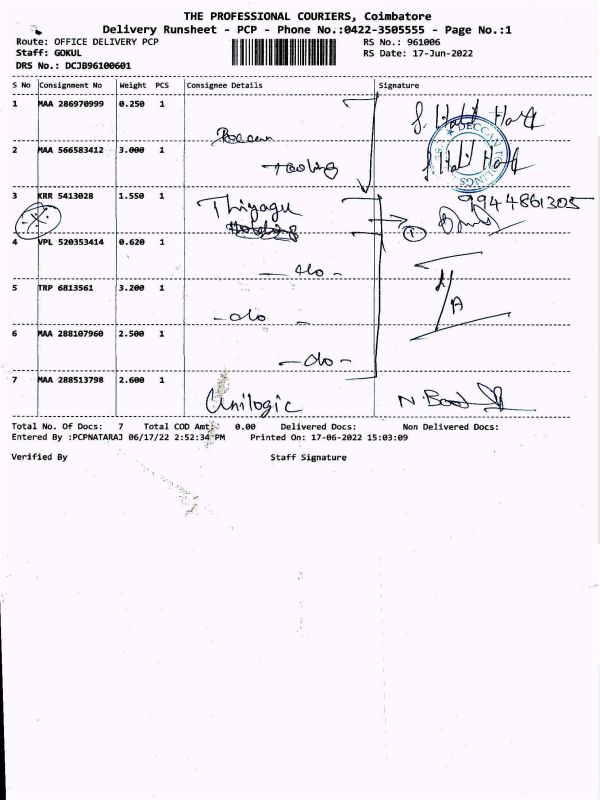 THE PROFESSIONAL COURIERS, Coimbatore
Delivery Runsheet - PCP - Phone No.:0422-3505555 - Page No.:1
Route: OFFICE DELIVERY PCP RS No.: 961006
Staff: GOKUL RS Date: 17-Jun-2022
DRS No.: DCJB96100601
S No Consignment No Weight PCS Consignee Details Signature
1 MAA 286970999 0.250 1
2 MAA 566583412 3.000 1 Tooling
DECCAN TOOLINGS
3 KRR 5413028 1.550 1 Thiyagu 9944861305
4 VPL 520353414 0.620 1 - do -
5 TRP 6813561 3.200 1 - do -
6 MAA 288107960 2.500 1 - do -
7 MAA 288513798 2.600 1 Unilogic
Total No. Of Docs: 7 Total COD Amt: 0.00 Delivered Docs: Non Delivered Docs:
Entered By :PCPNATARAJ 06/17/22 2:52:34 PM Printed On: 17-06-2022 15:03:09
Verified By Staff Signature